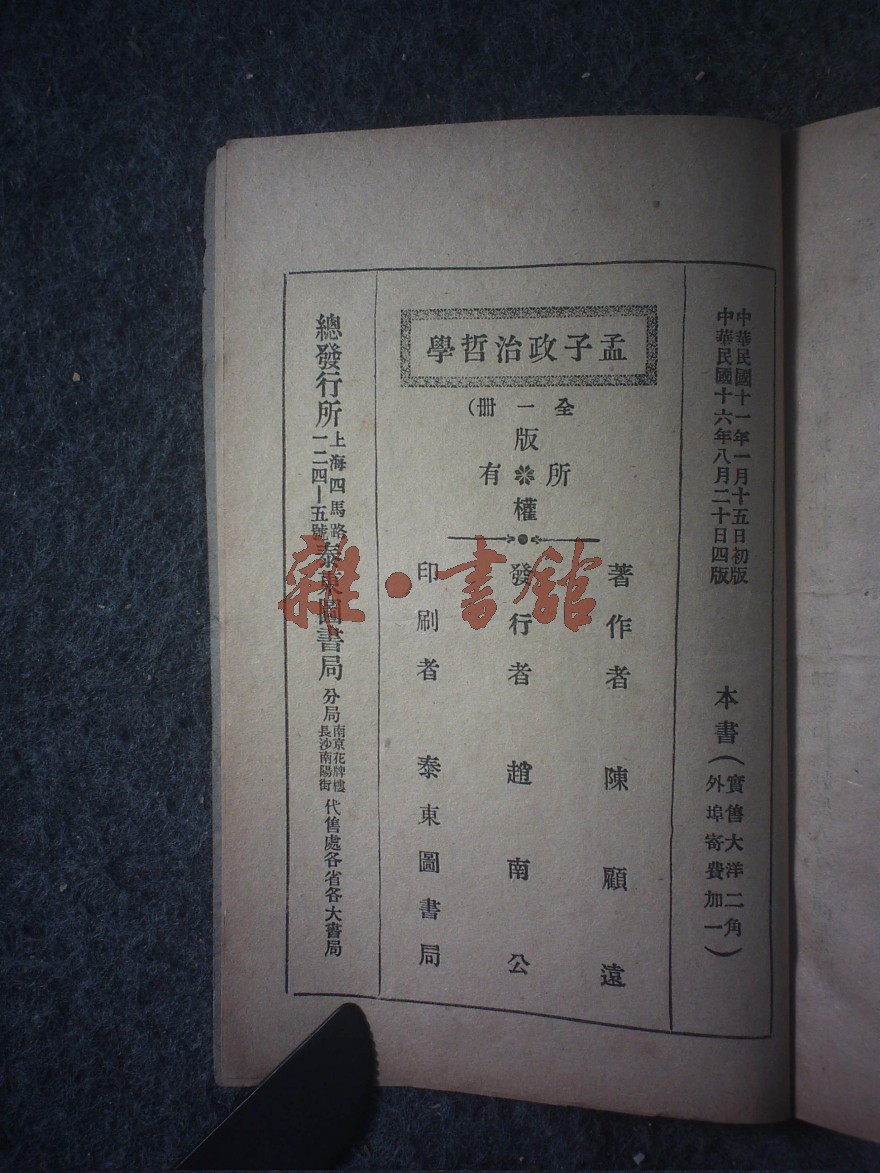 中華民國十一年一月十五日初版
中華民國十六年八月二十日四版
本書（實售大洋二角
外埠寄費加一）
孟子政治哲學
全一冊）
版
所有
權
著作者 陳顧遠
發行者 趙南公
印刷者 泰東圖書局
總發行所
上海四馬路
一二四－五號
泰東圖書局
分局
南京花牌樓
長沙南陽街
代售處各省各大書局
雜·書館